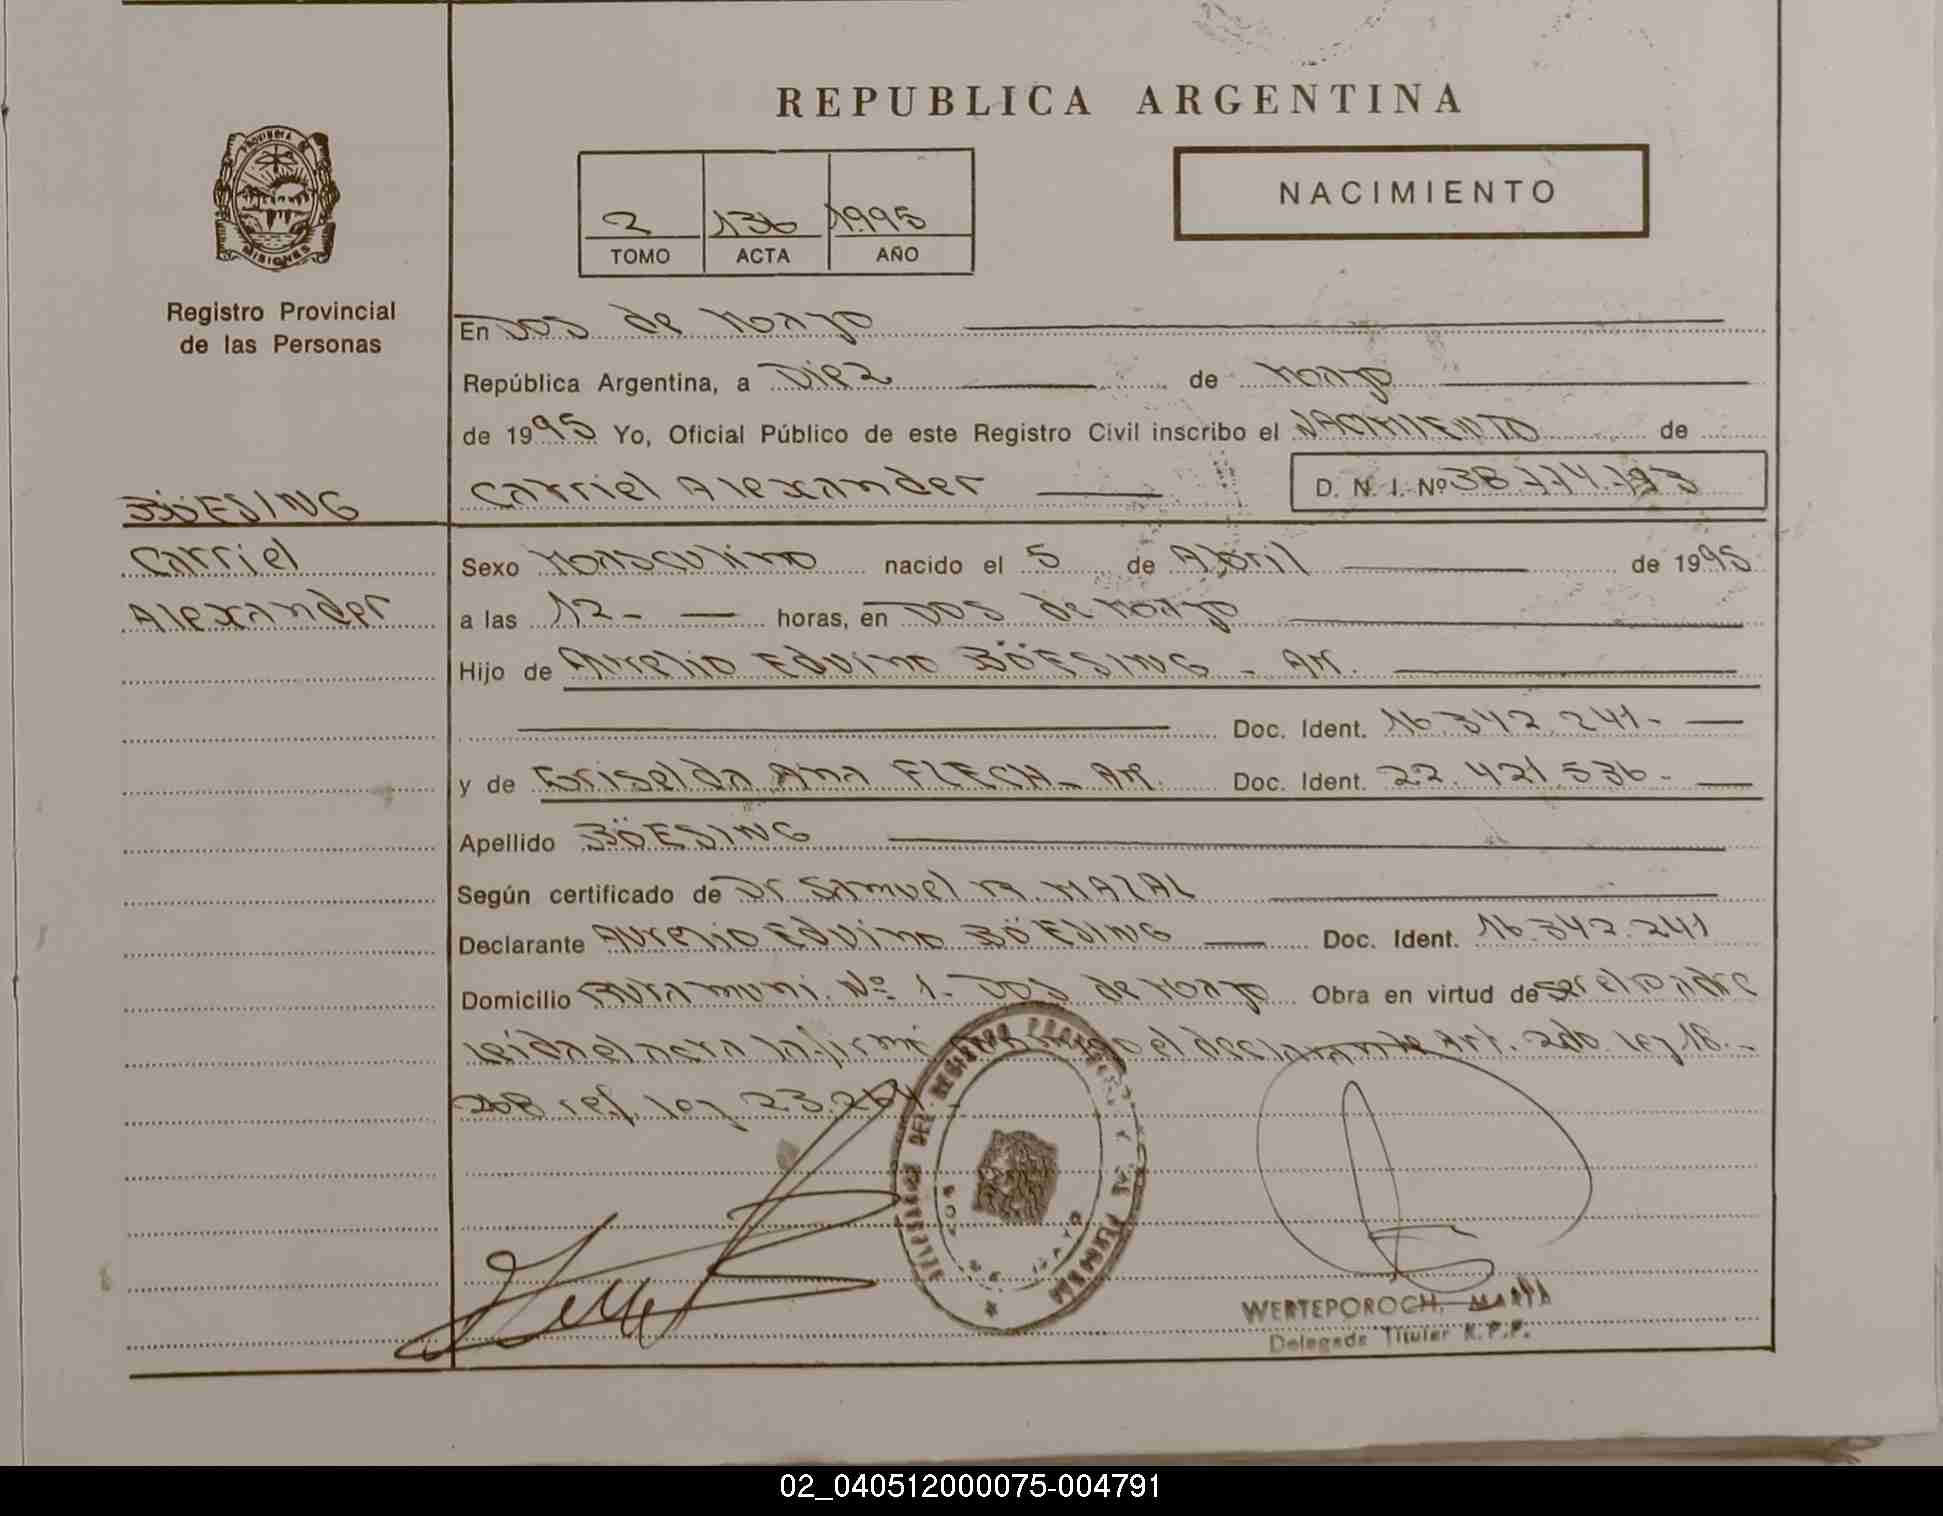 REPUBLICA ARGENTINA
NACIMIENTO
2 136 1995
TOMO ACTA AÑO
PROVINCIA DE
MISIONES
Registro Provincial
de las Personas
En Dos de Mayo
República Argentina, a Diez de Mayo
de 1995 Yo, Oficial Público de este Registro Civil inscribo el NACIMIENTO de
Carriel Alexander D. N. I. Nº 38.774.193
BÖESING
Carriel
Alexander
Sexo Masculino nacido el 5 de Abril de 1995
a las 12- horas, en Dos de Mayo
Hijo de Aurelio Eduino BÖESING - Ar.
Doc. Ident. 16.342.241-
y de Griselda Ana FLECH - Ar. Doc. Ident. 22.421.536-
Apellido BÖESING
Según certificado de Dr. Samuel M. MAZAL
Declarante Aurelio Eduino BÖESING Doc. Ident. 16.342.241
Domicilio Nº 1- Dos de Mayo Obra en virtud de ser el Padre
Leída el acta la firma el declarante Art. 2do. Ley 18.-
248 ref. Ley 23.264-
DEL REGISTRO
WERTEPOROCH, MARTA
Delegada Titular R.P.P.
02_040512000075-004791